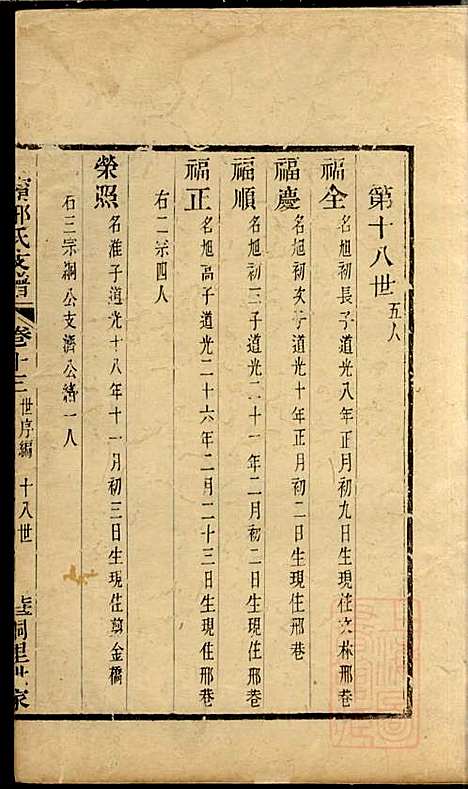 第十八世五人
福全 名旭初長子道光八年正月初九日生現住文林邢巷
福慶 名旭初次子道光十年正月初二日生現住邢巷
福順 名旭初三子道光二十一年二月初二日生現住邢巷
福正 名旭高子道光二十六年二月二十三日生現住邢巷
右二宗四人
榮照 名淮子道光十八年十一月初三日生現住剪金橋
右三宗綱公支濟公緒一人
氏支譜 卷十三 世序編 十八世 桐里世家